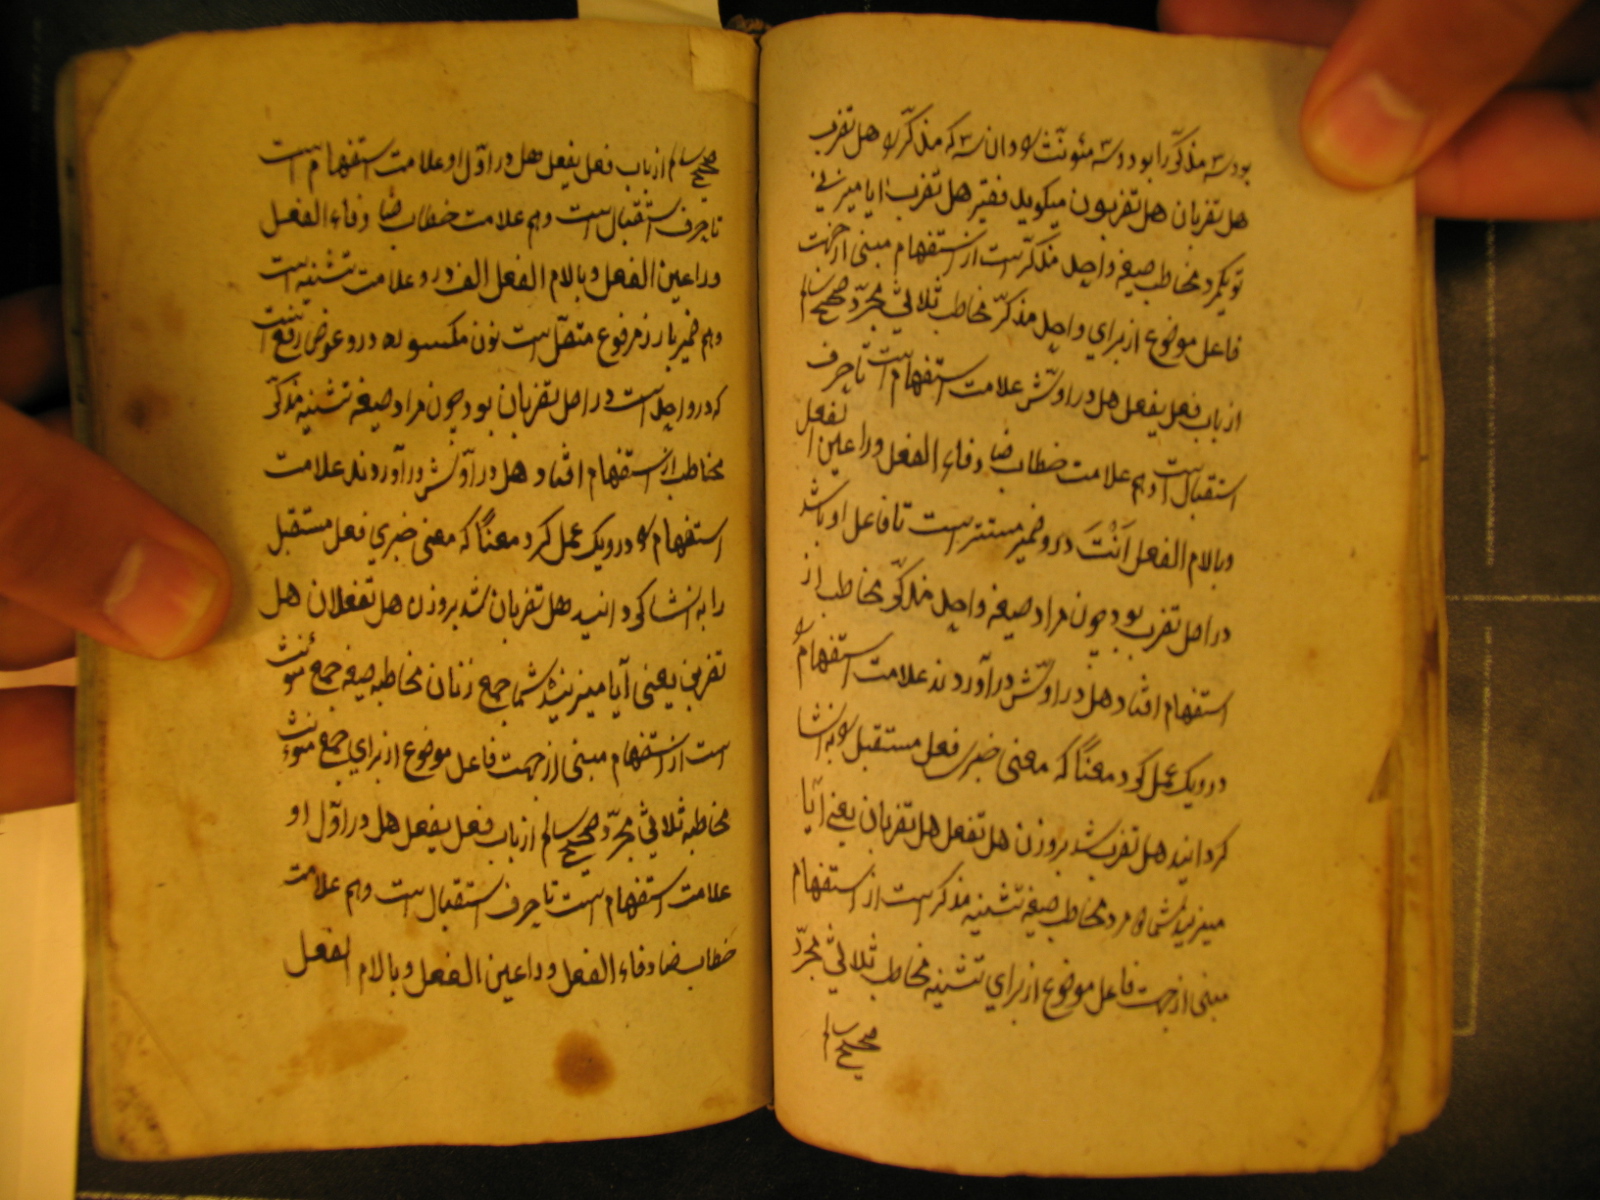 بود سه مذکر را بود و سه مئونث را و ان سه که مذکر را هل تضرب
هل تضربان هل تضربون میگوید فقیر هل تضرب ایا میزنی
تو یکمرد مخاطب صیغه واحد مذکر است از استفهام مبنی از جهت
فاعل موضوع از برای واحد مذکر مخاطب ثلاثی مجرد صحیح سالم
از باب فعل یفعل هل در اولش علامت استفهام است تا حرف
استقبال است و هم علامت خطاب ضا و فاء الفعل و را عین الفعل
و با لام الفعل اَنْتَ درو ضمیر مستتر است تا فاعل او باشد
در اصل تضرب بود چون مراد صیغه واحد مذکر مخاطب از
استفهام افتاد هل در اولش در آوردند علامت استفهام را
در ویک عمل کرد معناً که معنی خبری فعل مستقبل را به انشا
کردانید هل تضرب شد بروزن هل تفعل هل تضربان یعنی آیا
میزنید شما دو مرد مخاطب صیغه تثنیه مذکر است از استفهام
مبنی از جهت فاعل موضوع از برای تثنیه مخاطب ثلاثی مجرد
صحیح سالم
صحیح سالم از باب فعل یفعل هل در اول او علامت استفهام است
تا حرف استقبال است وهم علامت خطاب ضا و فاء الفعل
و را عین الفعل و با لام الفعل الف درو علامت تثنیه است
وهم ضمیر بارز مرفوع متصل است نون مکسوره درو عوض رفع است
که در واحد است در اصل تضربان بود چون مراد صیغه تثنیه مذکر
مخاطب از استفهام افتاد هل در آولش در آوردند علامت
استفهام را در ویک عمل کرد معناً که معنی خبری فعل مستقبل
را به انشا کردانید هل تضربان شد بروزن هل تفعلان هل
تضربن یعنی آیا میزنید شما جمع زنان مخاطبه صیغه جمع مئونث
است از استفهام مبنی از جهت فاعل موضوع از برای جمع مئونث
مخاطبه ثلاثی مجرد صحیح سالم از باب فعل یفعل هل در آول او
علامت استفهام است تا حرف استقبال است وهم علامت
خطاب ضا و فاء الفعل و را عین الفعل و با لام الفعل